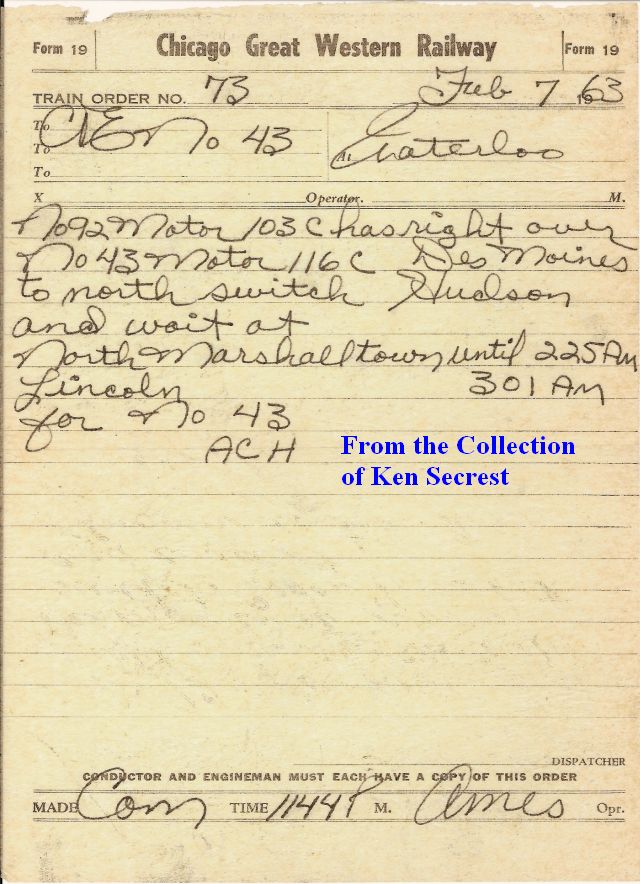 Form 19 Chicago Great Western Railway Form 19
TRAIN ORDER NO. 73 Feb 7 1963
To C&E No 43 At Waterloo
To
To
X Operator. M.
No 92 Motor 103C has right over
No 43 Motor 116C Des Moines
to north switch Hudson
and wait at
North Marshalltown until 225 AM
Lincoln 301 AM
for No 43
ACH
From the Collection
of Ken Secrest
DISPATCHER
CONDUCTOR AND ENGINEMAN MUST EACH HAVE A COPY OF THIS ORDER
MADE Com TIME 1144 P M. Ames Opr.